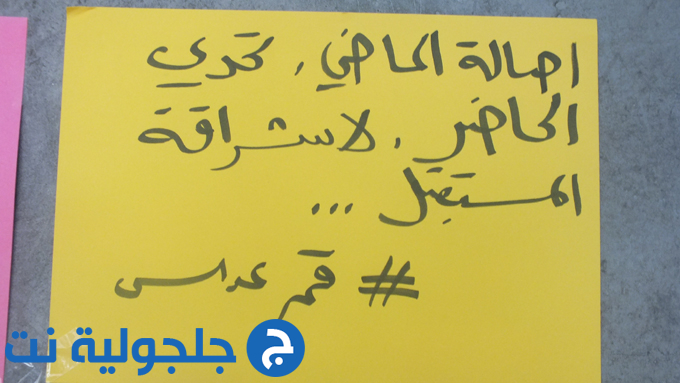 اصالة الماضي ، تحدي
الحاضر ، لاستشراقة
المستقبل ...
# قمر عدالسى
جلجولية نت